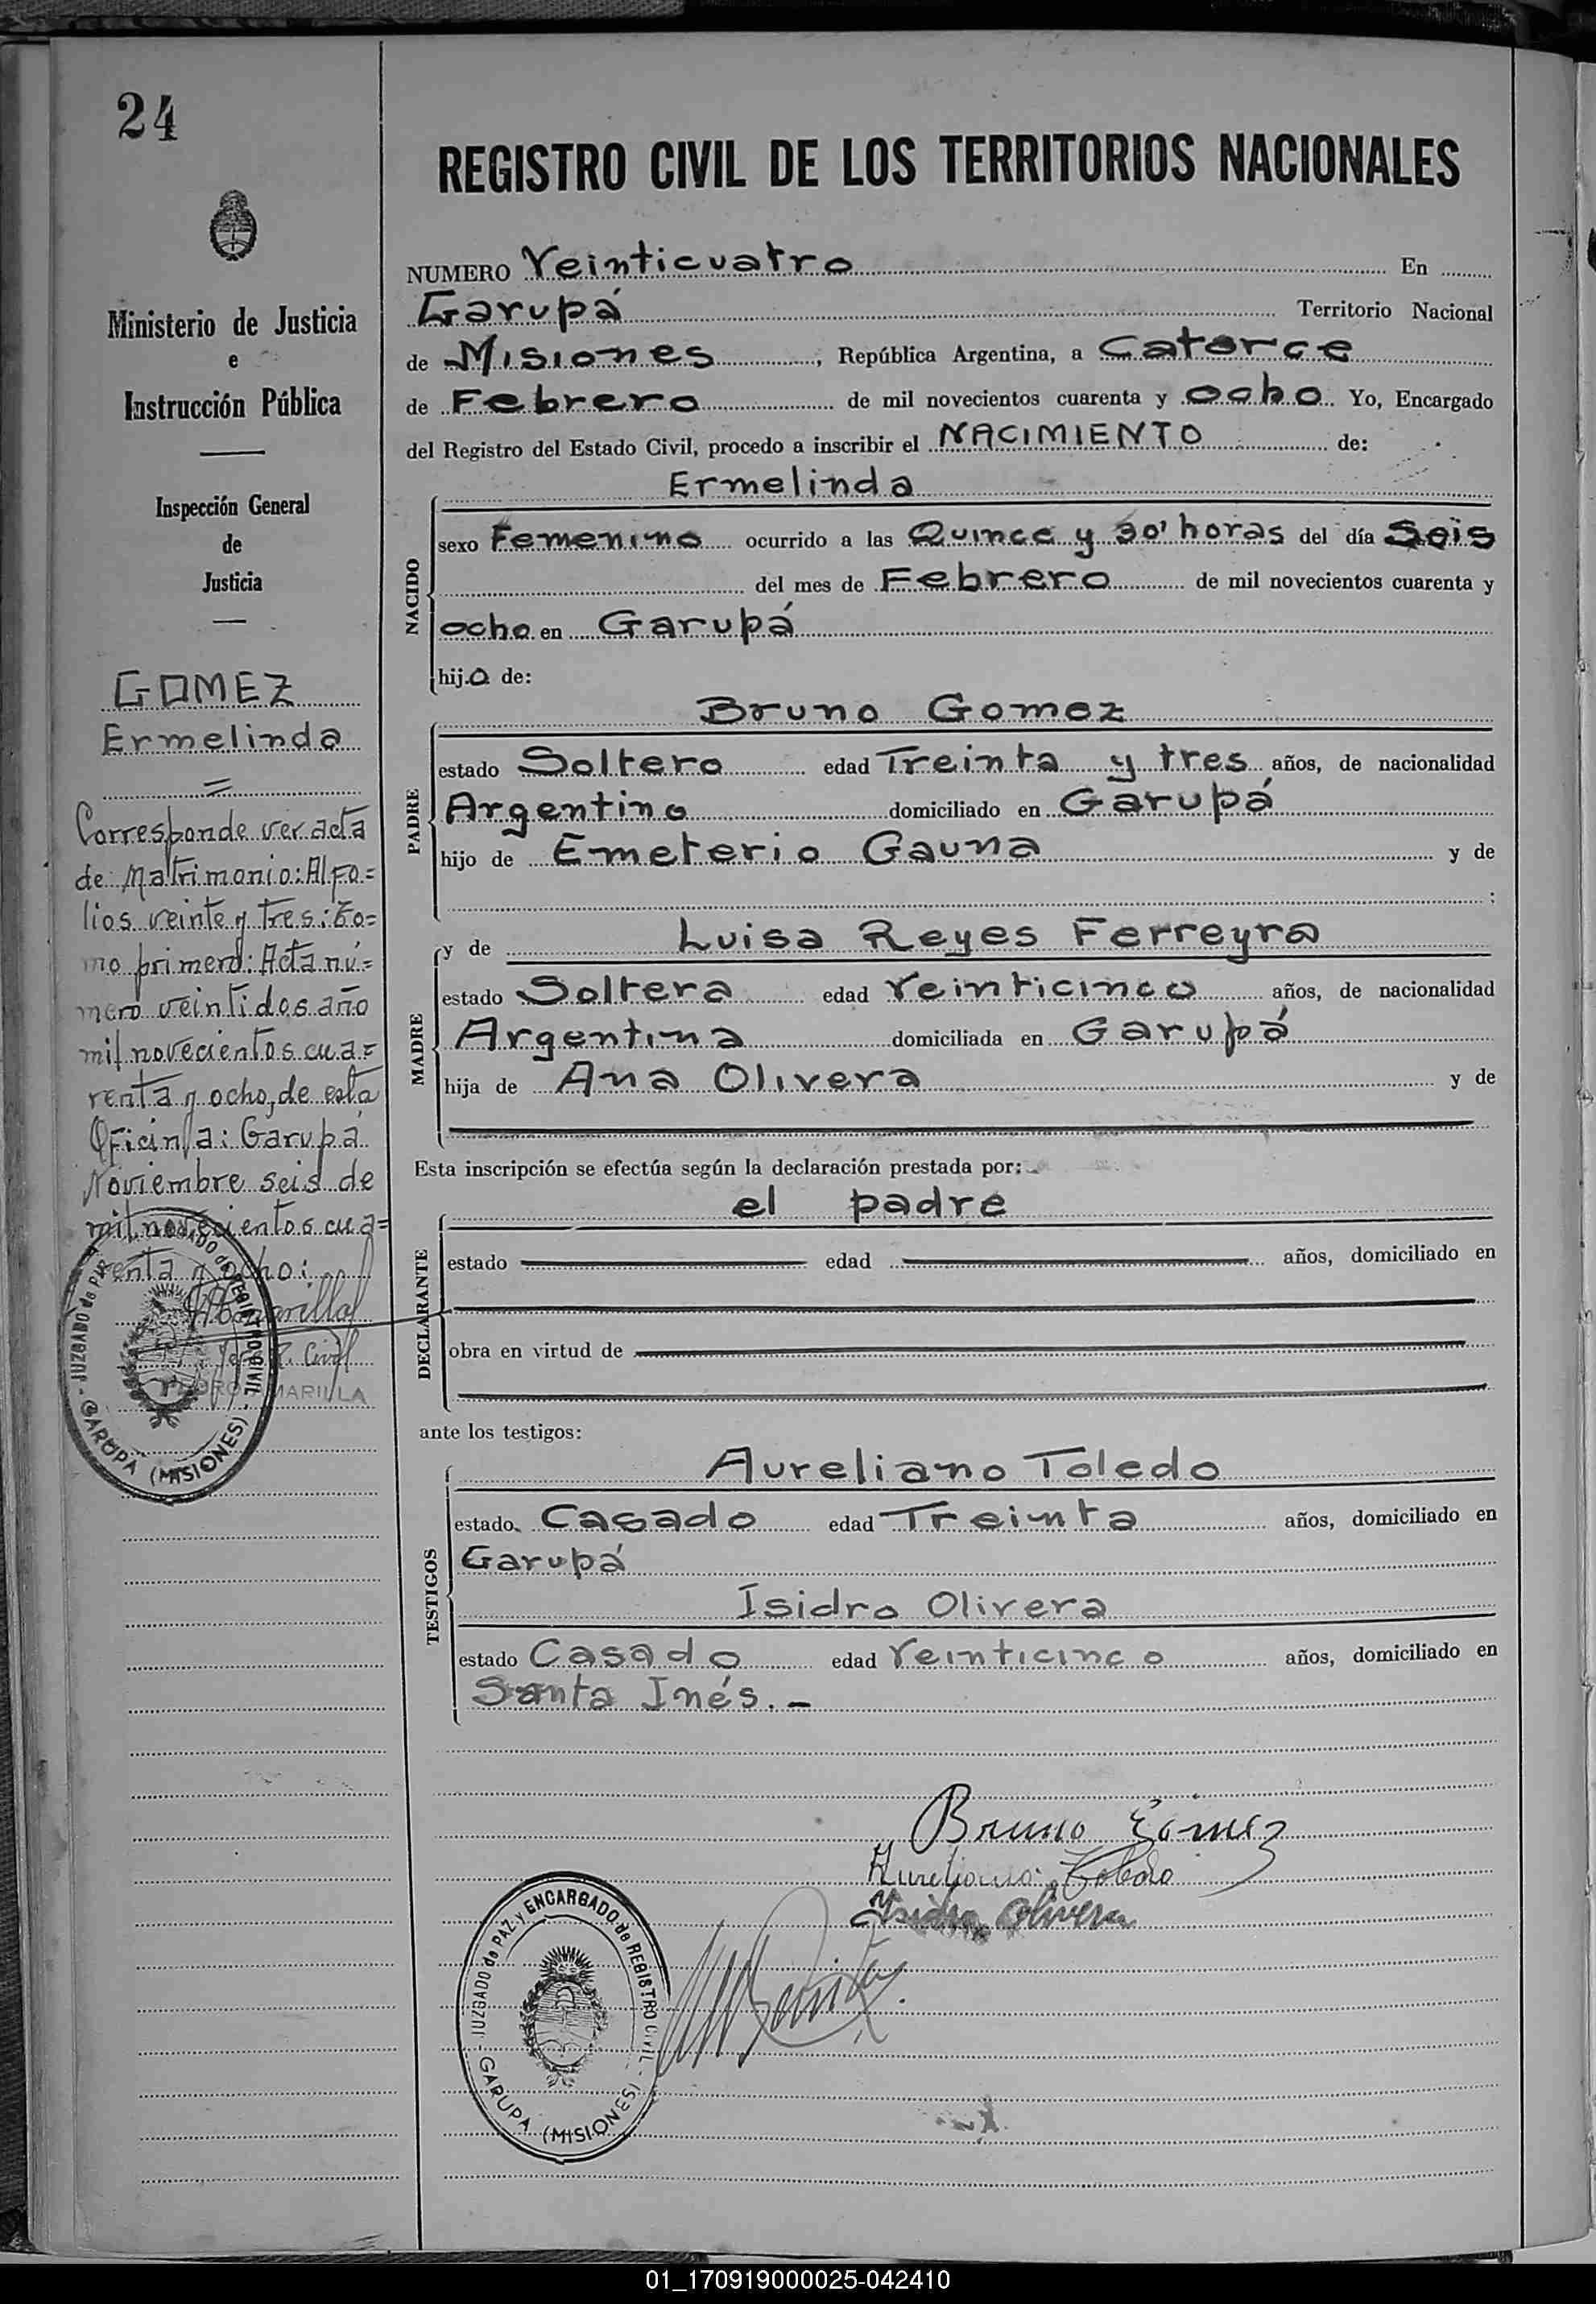 24
Ministerio de Justicia
e
Instrucción Pública
Inspección General
de
Justicia
GOMEZ
Ermelinda
Corresponde ver acta
de Matrimonio: Al fo=
lios veinte y tres: To=
mo primero: Acta nú=
mero veintidos año
mil novecientos cua=
renta y ocho, de esta
Oficina: Garupá
Noviembre seis de
mil novecientos cua=
renta y ocho:
R. Civil
MARILLA
JUZGADO de PAZ y ENCARGADO de REGISTRO CIVIL
GARUPA (MISIONES)
REGISTRO CIVIL DE LOS TERRITORIOS NACIONALES
NUMERO Veinticuatro En
Garupá Territorio Nacional
de Misiones, República Argentina, a Catorce
de Febrero de mil novecientos cuarenta y ocho. Yo, Encargado
del Registro del Estado Civil, procedo a inscribir el NACIMIENTO de:
NACIDO
Ermelinda
sexo Femenino ocurrido a las Quince y 30' horas del día Seis
del mes de Febrero de mil novecientos cuarenta y
ocho en Garupá
hija de:
PADRE
Bruno Gomez
estado Soltero edad Treinta y tres años, de nacionalidad
Argentino domiciliado en Garupá
hijo de Emeterio Gauna y de
;
MADRE
y de Luisa Reyes Ferreyra
estado Soltera edad Veinticinco años, de nacionalidad
Argentina domiciliada en Garupá
hija de Ana Olivera y de
Esta inscripción se efectúa según la declaración prestada por:
DECLARANTE
el padre
estado edad años, domiciliado en
obra en virtud de
ante los testigos:
TESTIGOS
Aureliano Toledo
estado Casado edad Treinta años, domiciliado en
Garupá
Isidro Olivera
estado Casado edad Veinticinco años, domiciliado en
Santa Inés. -
Bruno Gómez
Aureliano Toledo
Isidro Olivera
JUZGADO de PAZ y ENCARGADO de REGISTRO CIVIL
GARUPA (MISIONES)
01_170919000025-042410